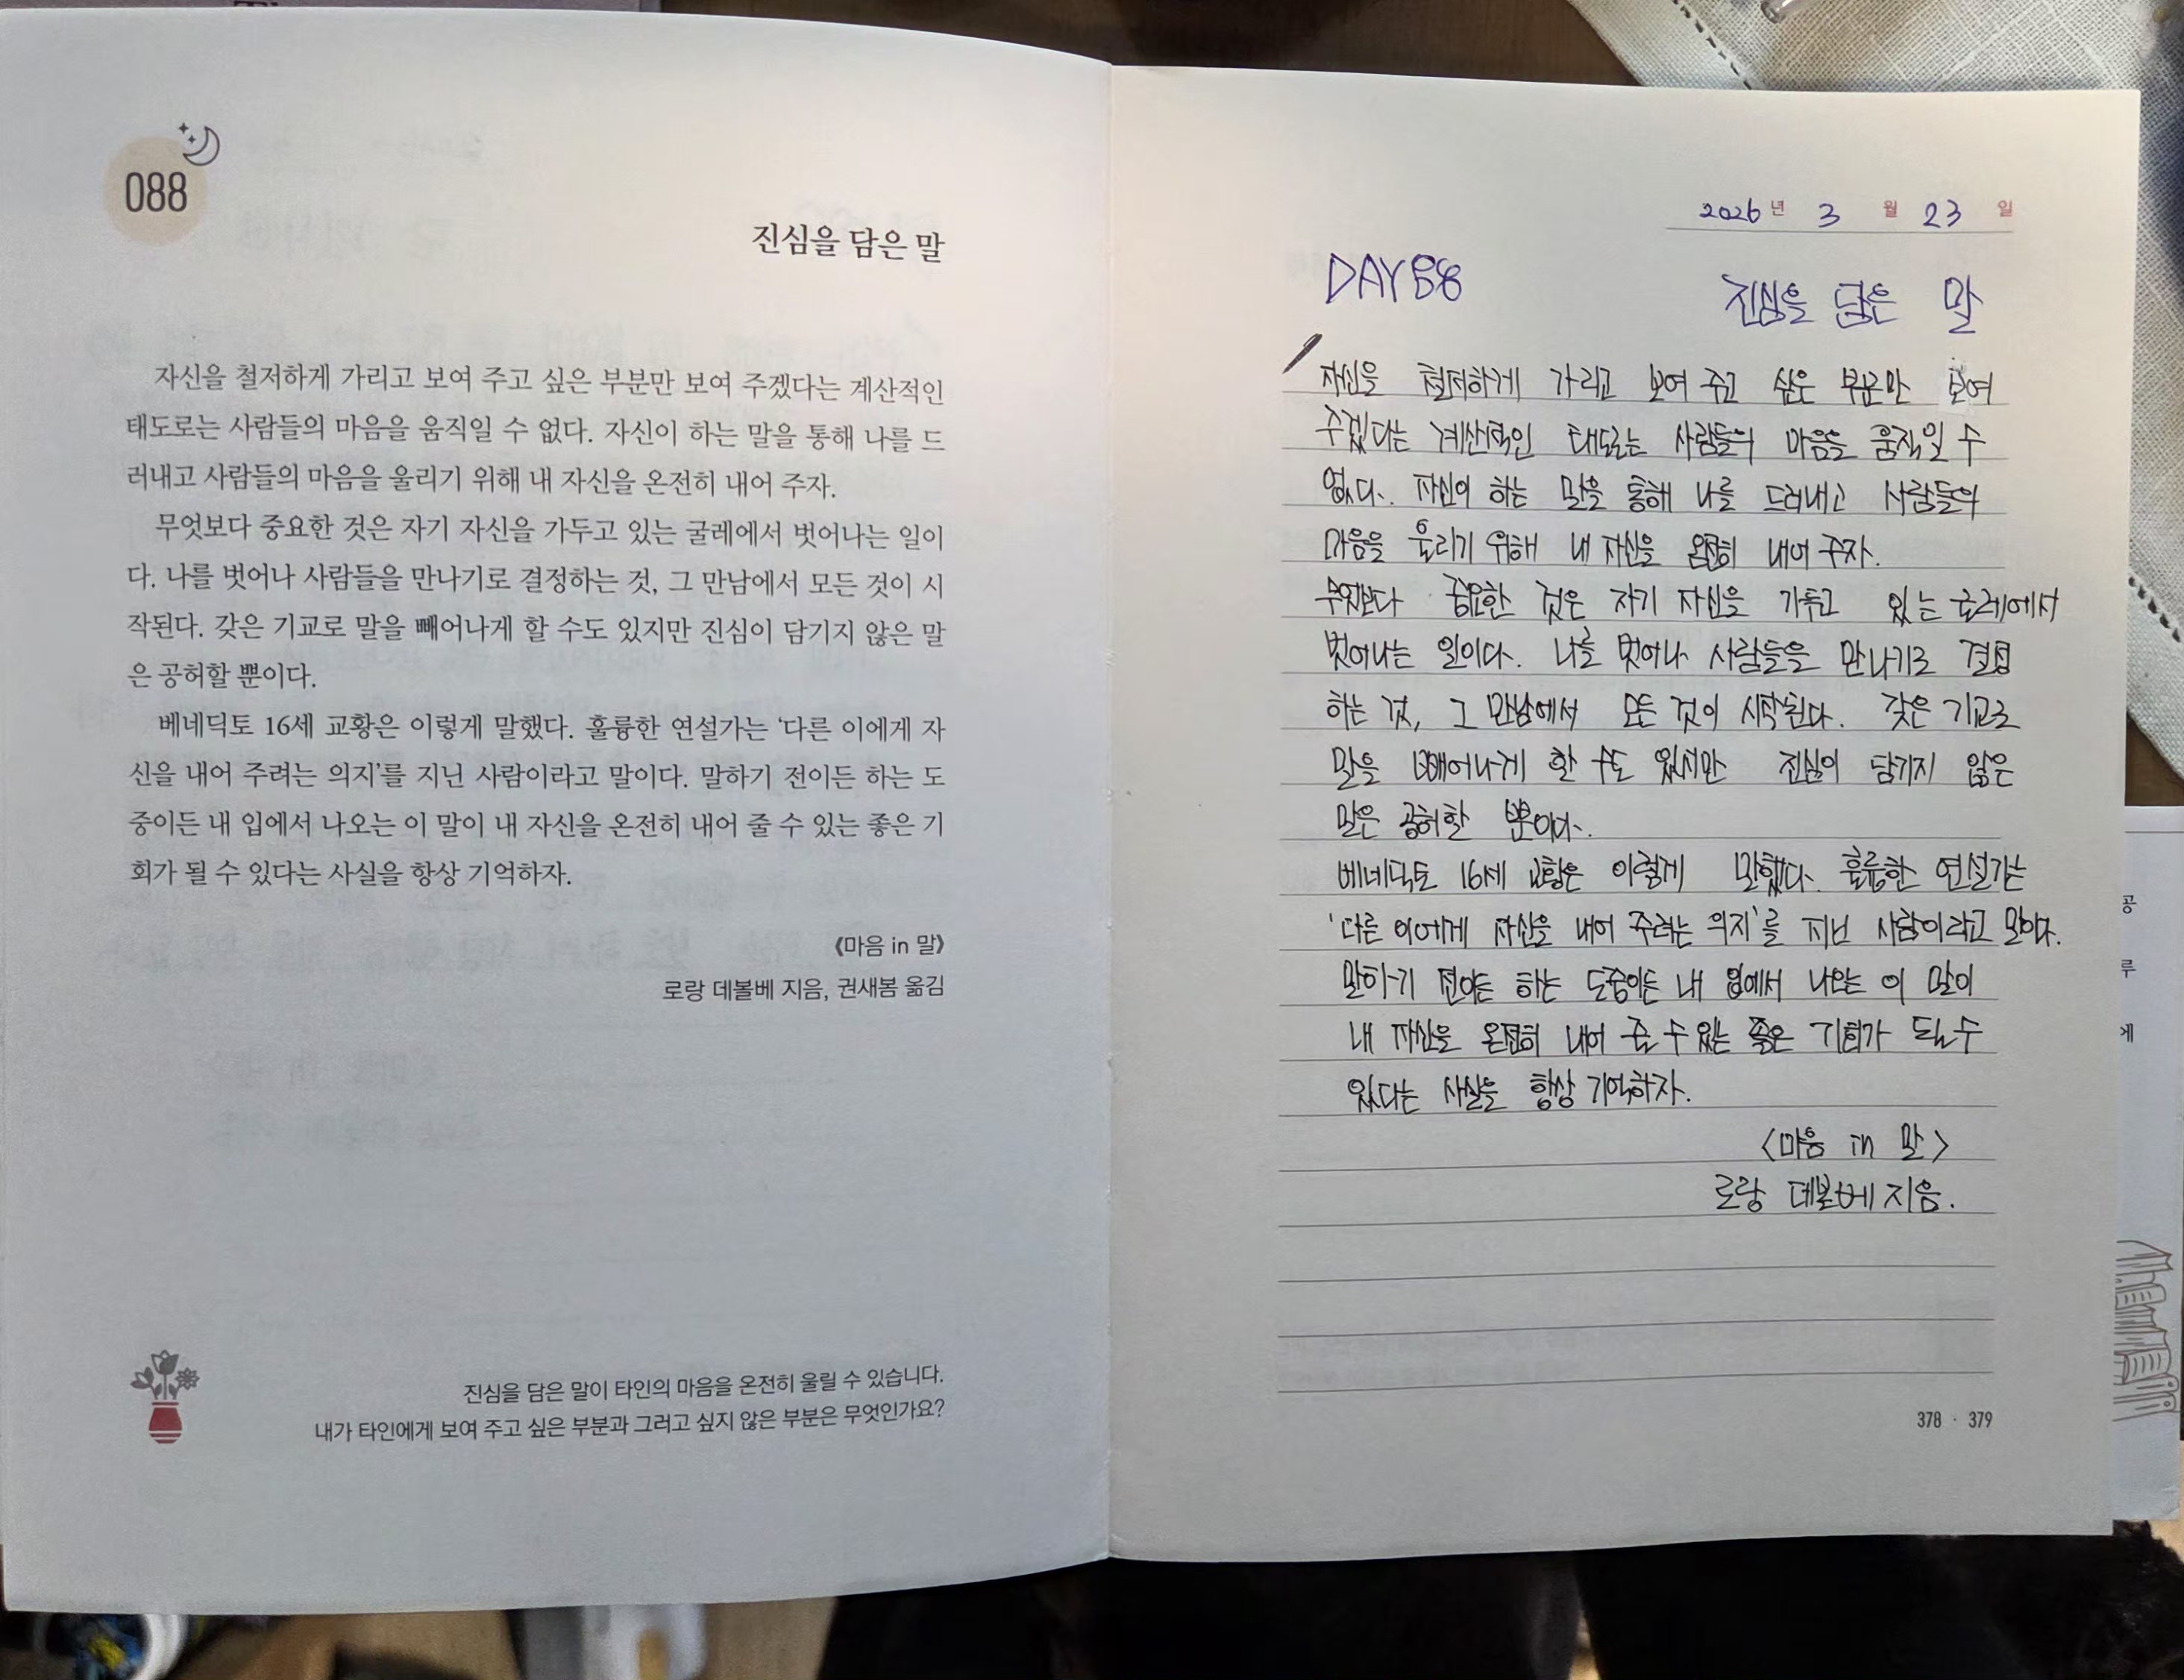 088
진심을 담은 말
자신을 철저하게 가리고 보여 주고 싶은 부분만 보여 주겠다는 계산적인
태도로는 사람들의 마음을 움직일 수 없다. 자신이 하는 말을 통해 나를 드
러내고 사람들의 마음을 울리기 위해 내 자신을 온전히 내어 주자.
무엇보다 중요한 것은 자기 자신을 가두고 있는 굴레에서 벗어나는 일이
다. 나를 벗어나 사람들을 만나기로 결정하는 것, 그 만남에서 모든 것이 시
작된다. 갖은 기교로 말을 빼어나게 할 수도 있지만 진심이 담기지 않은 말
은 공허할 뿐이다.
베네딕토 16세 교황은 이렇게 말했다. 훌륭한 연설가는 ‘다른 이에게 자
신을 내어 주려는 의지’를 지닌 사람이라고 말이다. 말하기 전이든 하는 도
중이든 내 입에서 나오는 이 말이 내 자신을 온전히 내어 줄 수 있는 좋은 기
회가 될 수 있다는 사실을 항상 기억하자.
《마음 in 말》
로랑 데볼베 지음, 권새봄 옮김
진심을 담은 말이 타인의 마음을 온전히 울릴 수 있습니다.
내가 타인에게 보여 주고 싶은 부분과 그러고 싶지 않은 부분은 무엇인가요?
2026년 3 월 23 일
DAY 88
진심을 담은 말
자신을 철저하게 가리고 보여 주고 싶은 부분만 보여
주겠다는 계산적인 태도로는 사람들의 마음을 움직일 수
없다. 자신이 하는 말을 통해 나를 드러내고 사람들의
마음을 울리기 위해 내 자신을 온전히 내어 주자.
무엇보다 중요한 것은 자기 자신을 가두고 있는 굴레에서
벗어나는 일이다. 나를 벗어나 사람들을 만나기로 결정
하는 것, 그 만남에서 모든 것이 시작된다. 갖은 기교로
말을 빼어나게 할 수도 있지만 진심이 담기지 않은
말은 공허할 뿐이다.
베네딕토 16세 교황은 이렇게 말했다. 훌륭한 연설가는
'다른 이에게 자신을 내어 주려는 의지'를 지닌 사람이라고 말이다.
말하기 전이든 하는 도중이든 내 입에서 나오는 이 말이
내 자신을 온전히 내어 줄 수 있는 좋은 기회가 될 수
있다는 사실을 항상 기억하자.
<마음 in 말>
로랑 데볼베 지음.
378 · 379
공
루
게